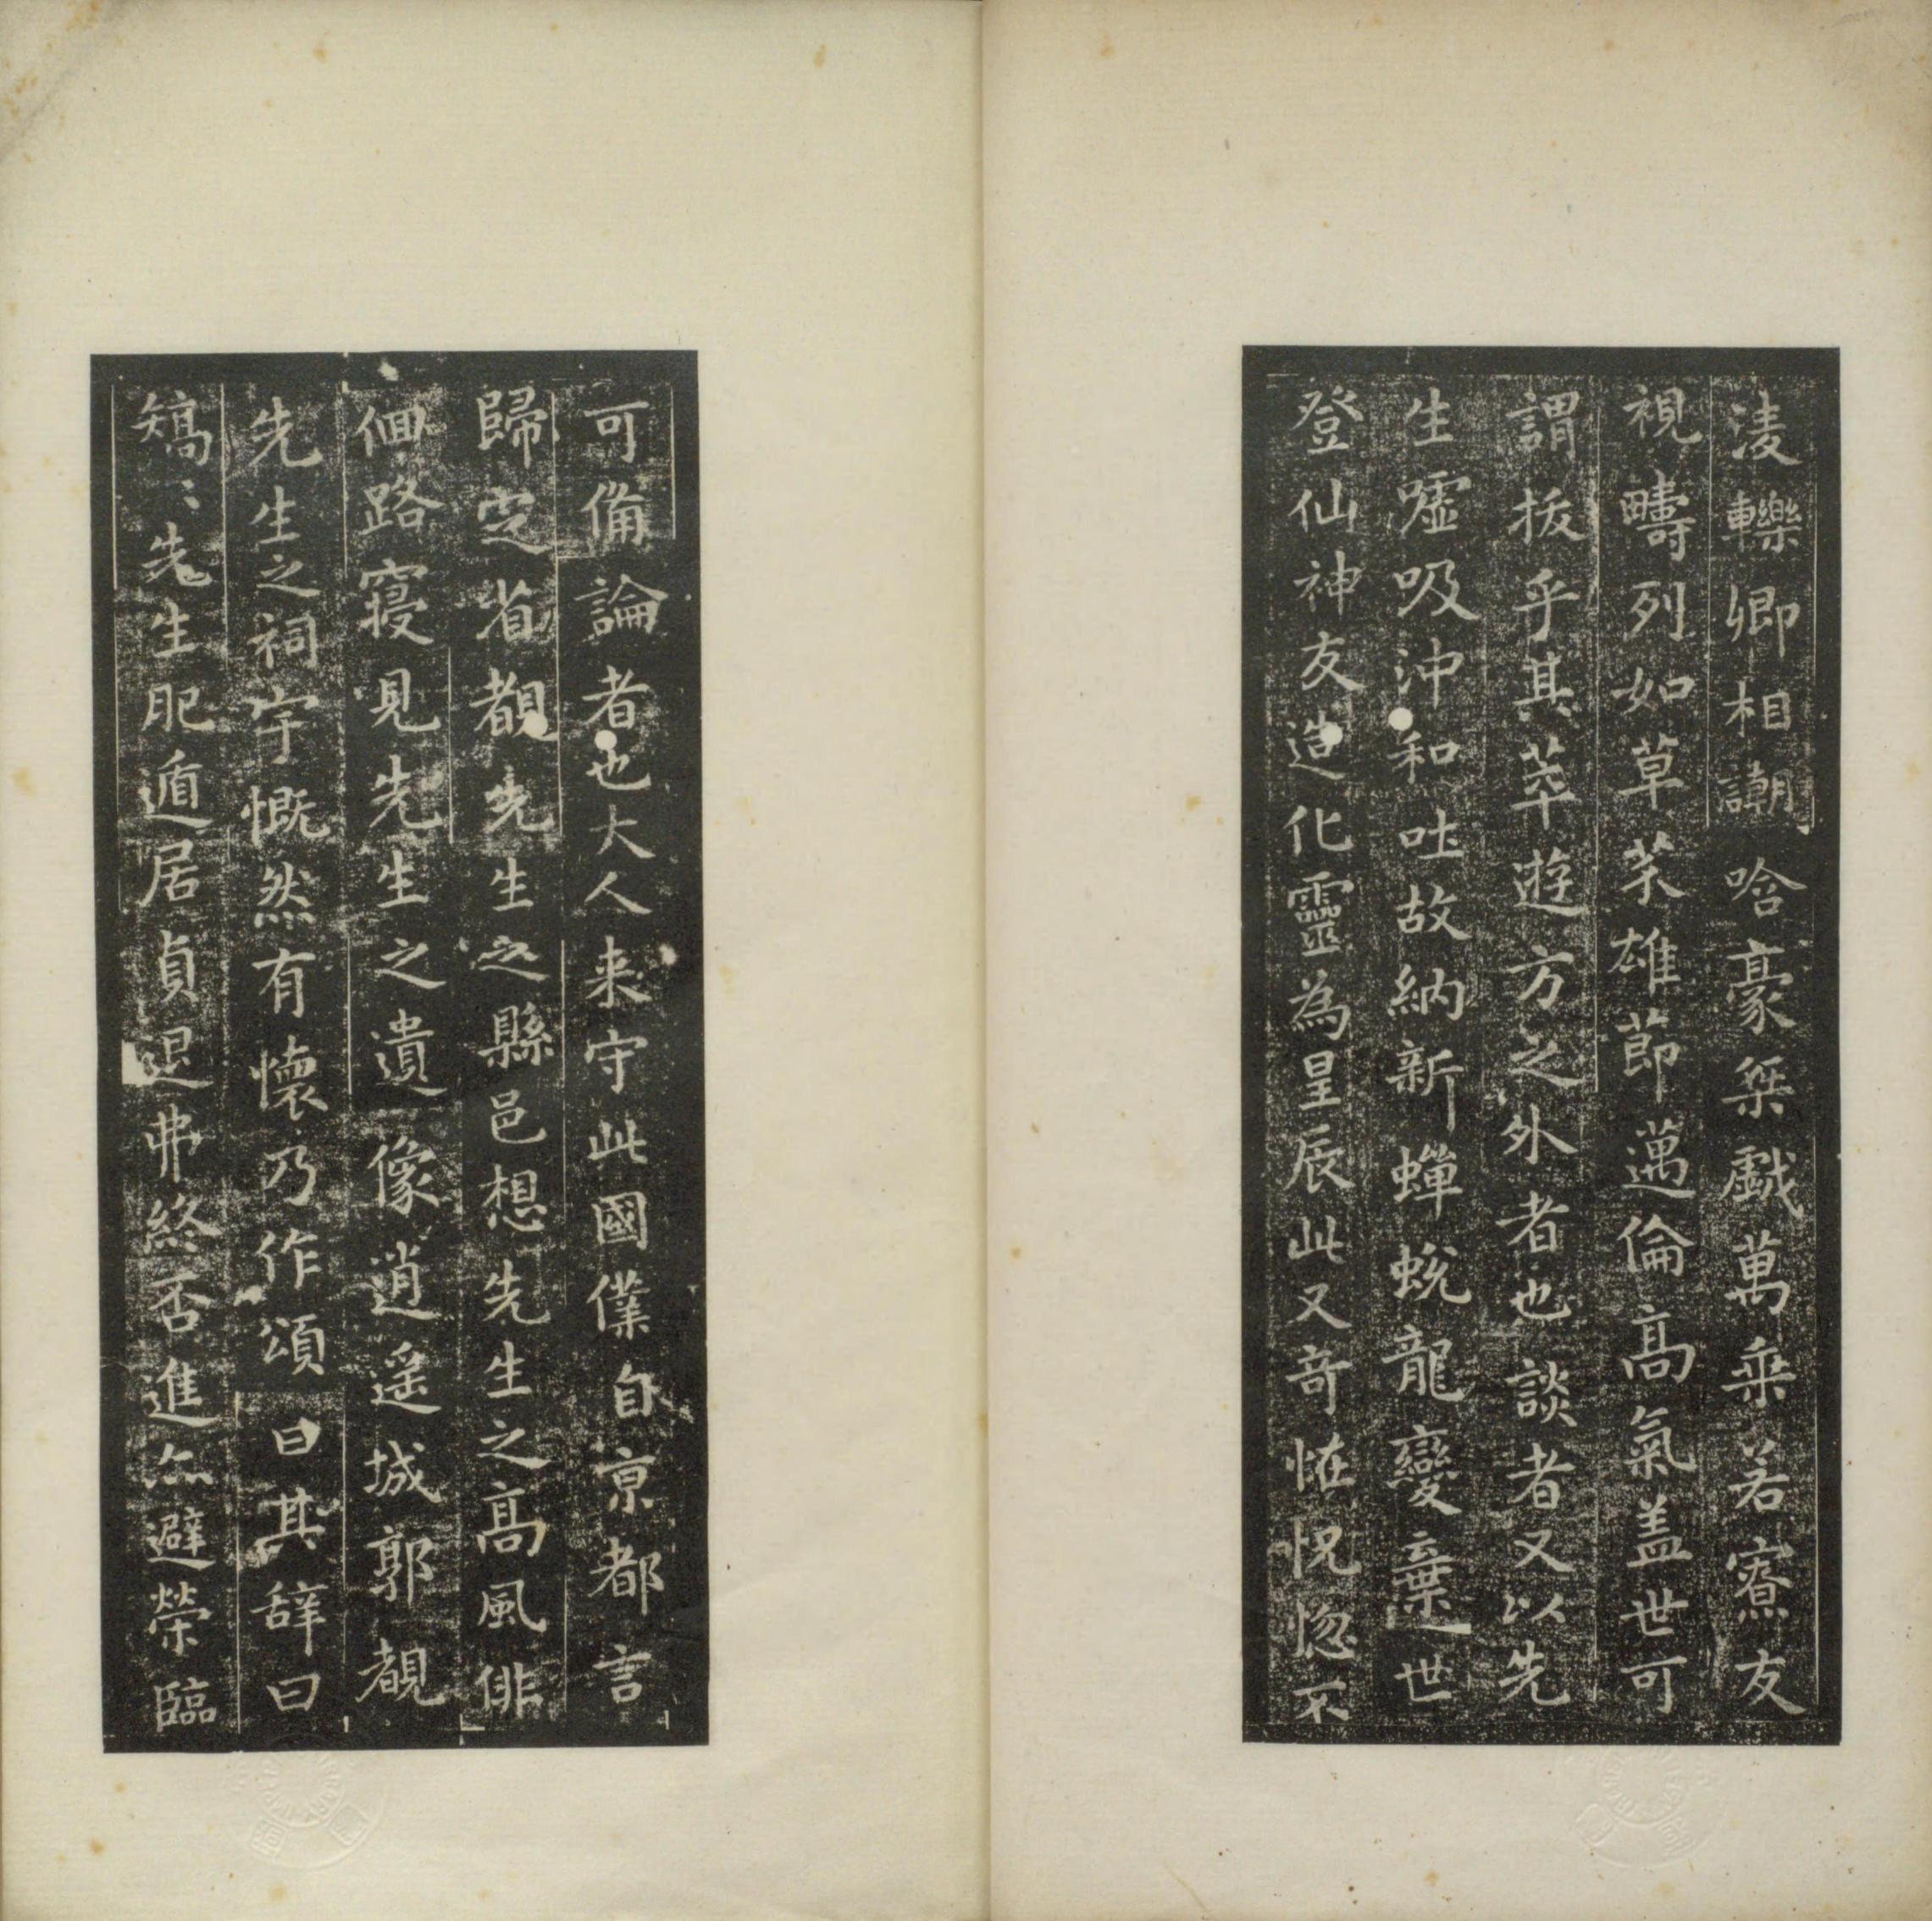 凌轢卿相謿哈豪桀戱萬乘若寮友
視疇列如草芥雄節邁倫高氣盖世可
謂拔乎其萃遊方之外者也談者又以先
生噓吸沖和吐故納新蟬蛻龍變棄世
登仙神友造化靈為星辰此又奇恠怳惚不
可備論者也大人来守此國僕自京都言
歸定省覩先生之縣邑想先生之高風俳
佪路寢見先生之遺像逍遥城郭覩
先生之祠宇慨然有懷乃作頌曰其辞曰
矯〻先生肥遁居貞退弗終否進亦避榮臨